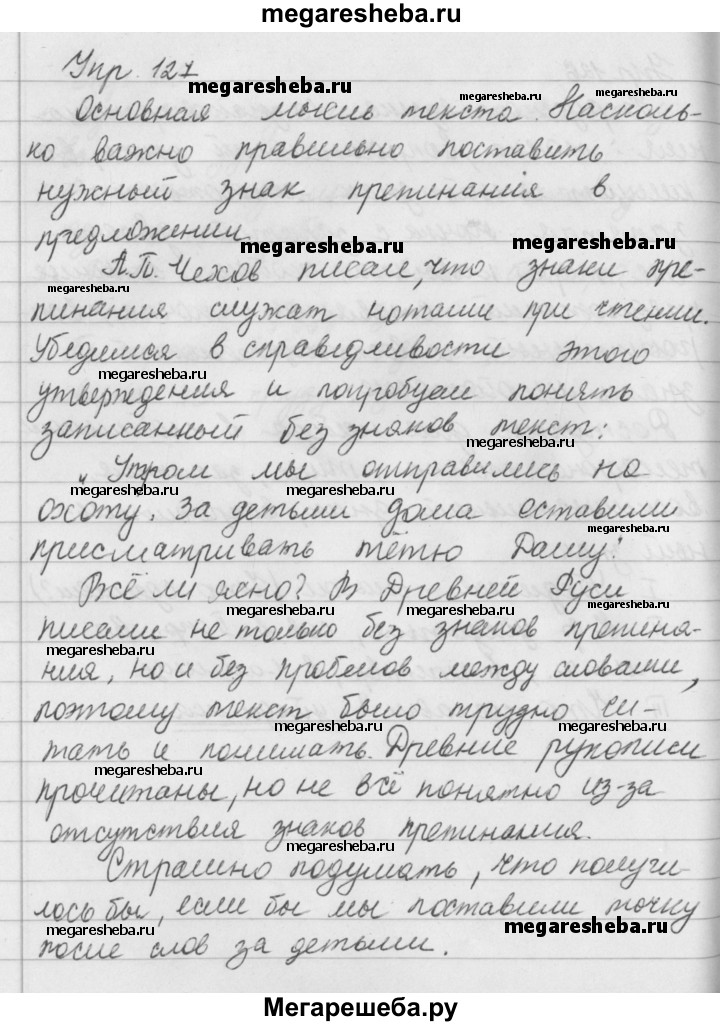 megaresheba.ru
Упр. 127
megaresheba.ru
megaresheba.ru
Основная мысль текста. Насколь-
ко важно правильно поставить
нужный знак препинания в
предложении
megaresheba.ru
megaresheba.ru
А.П. Чехов писал, что знаки пре-
megaresheba.ru
пинания служат нотами при чтении.
Убедимся в справедливости этого
megaresheba.ru
megaresheba.ru
утверждения и попробуем понять
записанный без знаков текст:
megaresheba.ru
"Утром мы отправились на
megaresheba.ru
megaresheba.ru
охоту. За детьми дома оставили
megaresheba.ru
присматривать тётю Дашу".
Всё ли ясно? В Древней Руси
megaresheba.ru
megaresheba.ru
писали не только без знаков препина-
megaresheba.ru
ния, но и без пробелов между словами,
поэтому текст было трудно чи-
megaresheba.ru
megaresheba.ru
тать и понимать. Древние рукописи
megaresheba.ru
прочитаны, но не всё понятно из-за
отсутствия знаков препинания.
megaresheba.ru
Страшно подумать, что получи-
лось бы, если бы мы поставили точку
megaresheba.ru
megaresheba.ru
после слов за детьми.
Мегарешеба.ру